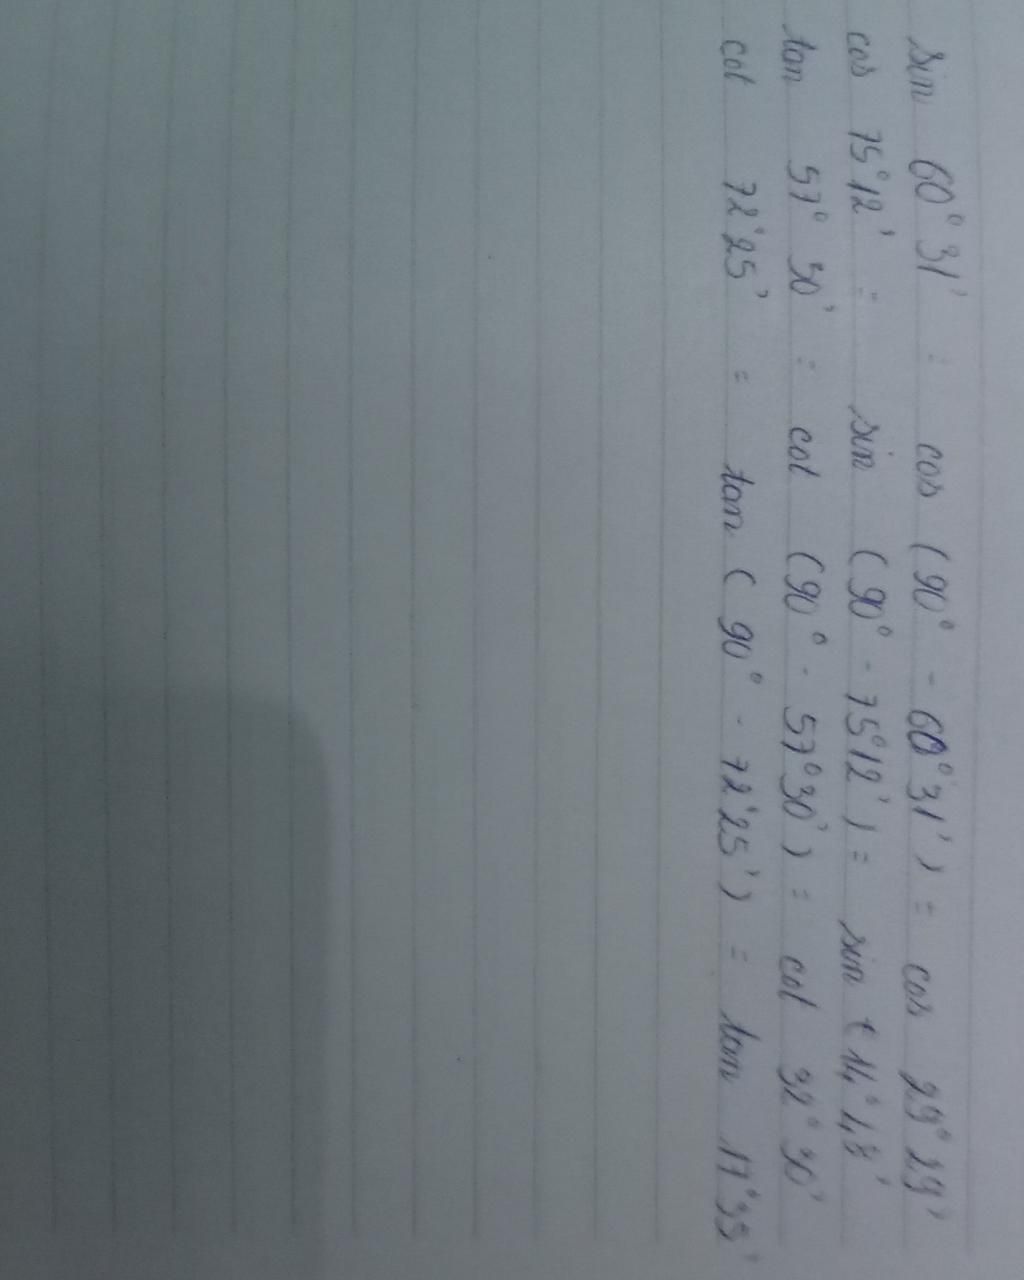 sin 60°31' = cos (90° - 60°31') = cos 29°29'
cos 75°12' = sin (90° - 75°12') = sin 14°48'
tan 57°30' = cot (90° - 57°30') = cot 32°30'
cot 72°25' = tan (90° - 72°25') = tan 17°35'